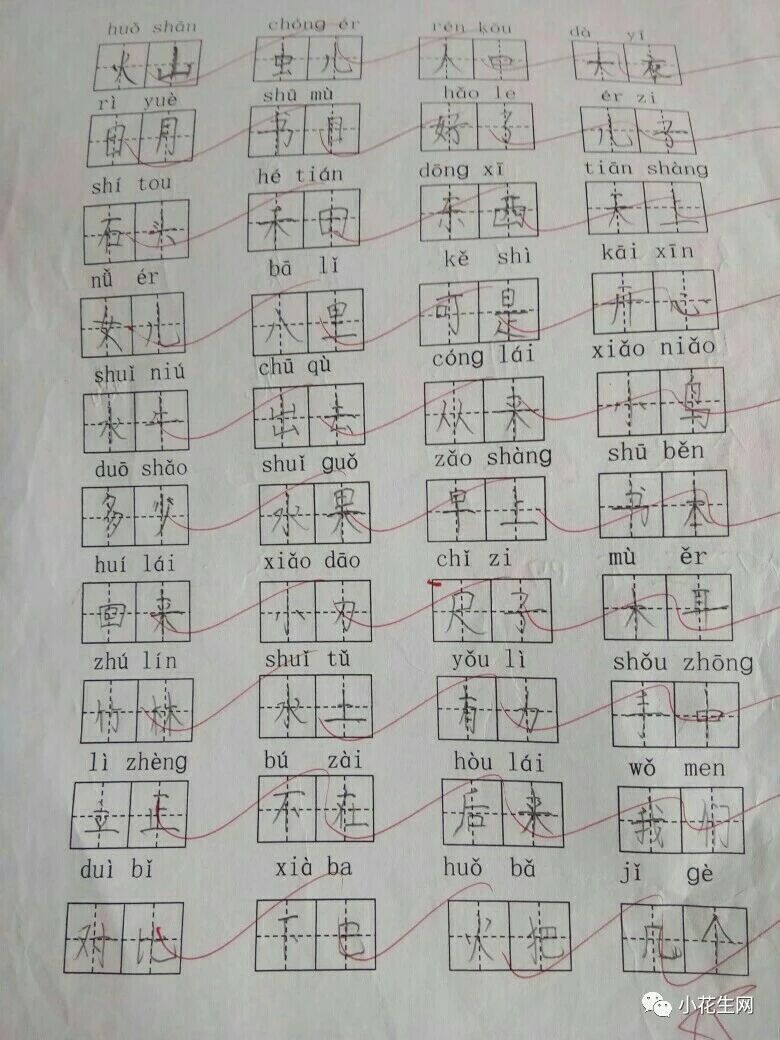 huǒ shān chóng ér rén kǒu dà yī
火山 虫儿 人口 大衣
rì yuè shū mù hǎo le ér zi
日月 书目 好了 儿子
shí tou hé tián dōng xī tiān shàng
石头 禾田 东西 天上
nǚ ér bā lǐ kě shì kāi xīn
女儿 八里 可是 开心
shuǐ niú chū qù cóng lái xiǎo niǎo
水牛 出去 从来 小鸟
duō shǎo shuǐ guǒ zǎo shàng shū běn
多少 水果 早上 书本
huí lái xiǎo dāo chǐ zi mù ěr
回来 小刀 尺子 木耳
zhú lín shuǐ tǔ yǒu lì shǒu zhōng
竹林 水土 有力 手中
lì zhèng bú zài hòu lái wǒ men
立正 不在 后来 我们
duì bǐ xià ba huǒ bǎ jǐ gè
对比 下巴 火把 几个
小花生网